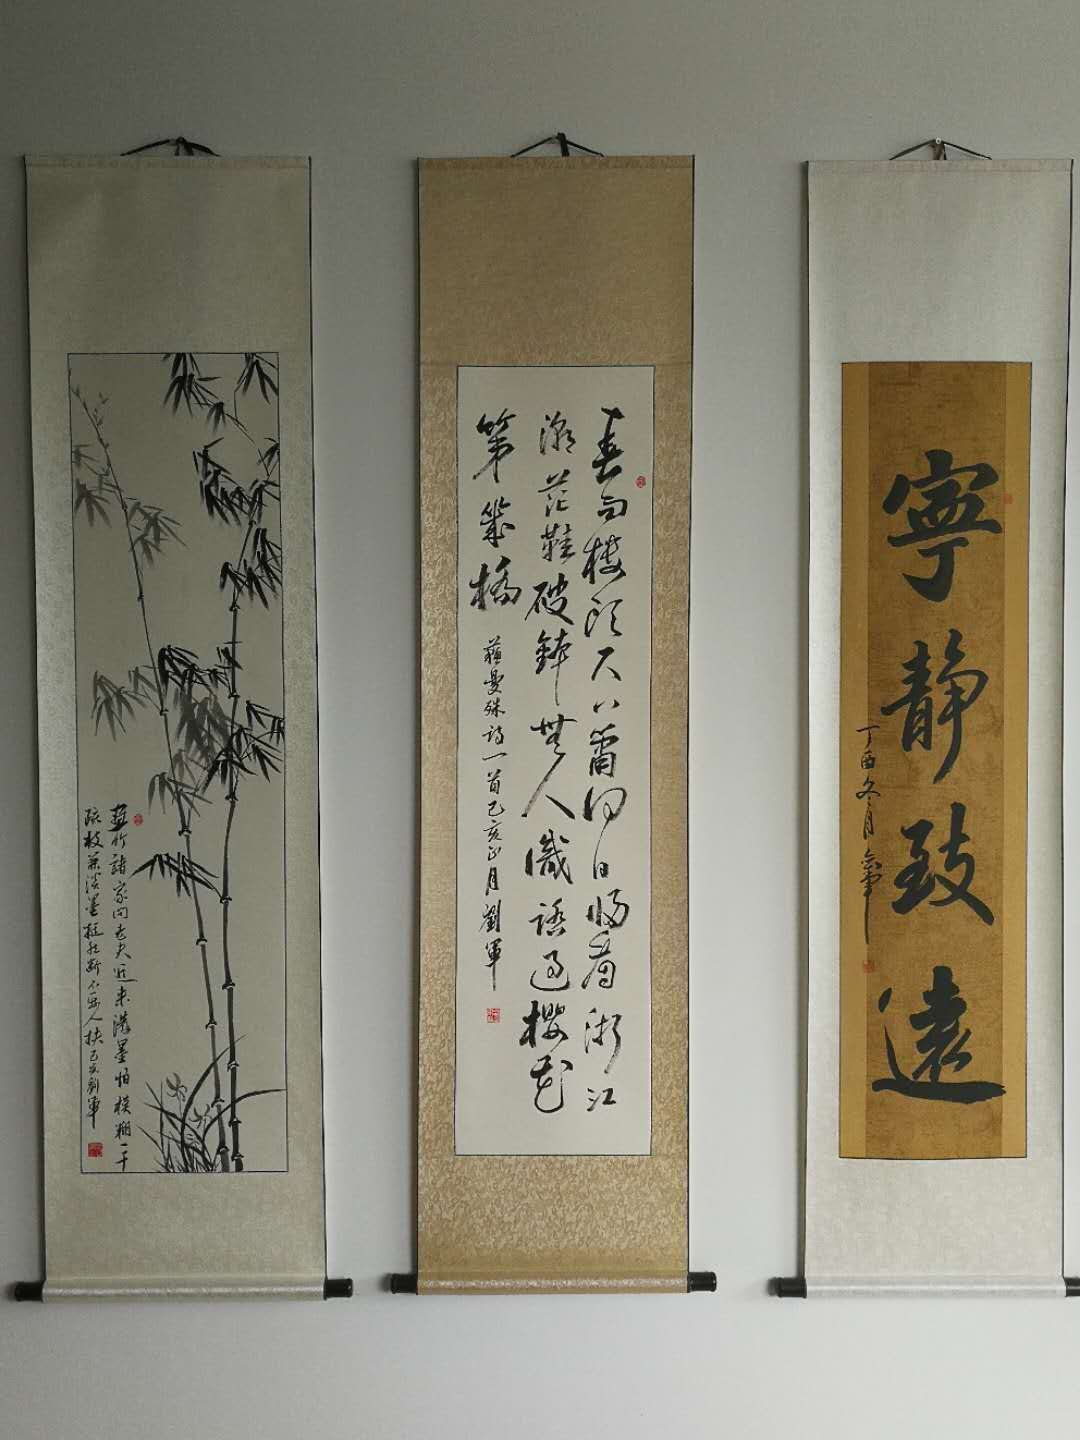 寧靜致遠
丁酉冬月
春雨樓頭尺八簫何日歸看浙江
潮芒鞋破鉢無人識踏過櫻花
第幾橋
蘇曼殊詩一首己亥正月劉軍
畫竹諸家問老夫近來潑墨怕模糊一干
疏枝兼淡墨挺然斷不要人扶己亥劉軍